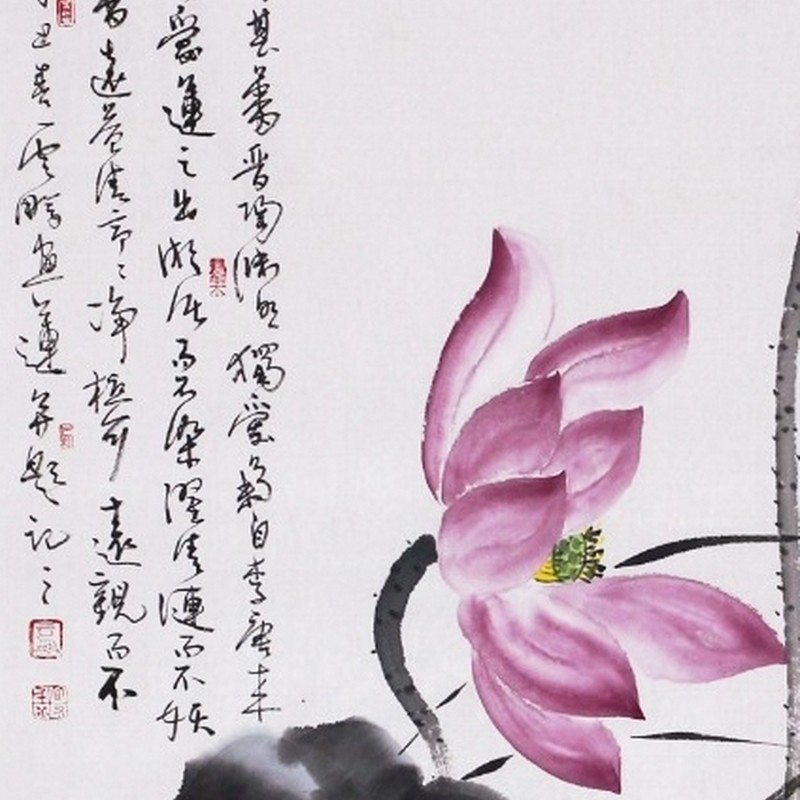 甚蕃晋陶渊明獨愛菊自李唐来
愛蓮之出淤泥而不染濯清漣而不妖
香遠益清亭々净植可遠觀而不
丑春雲畫蓮并題記之